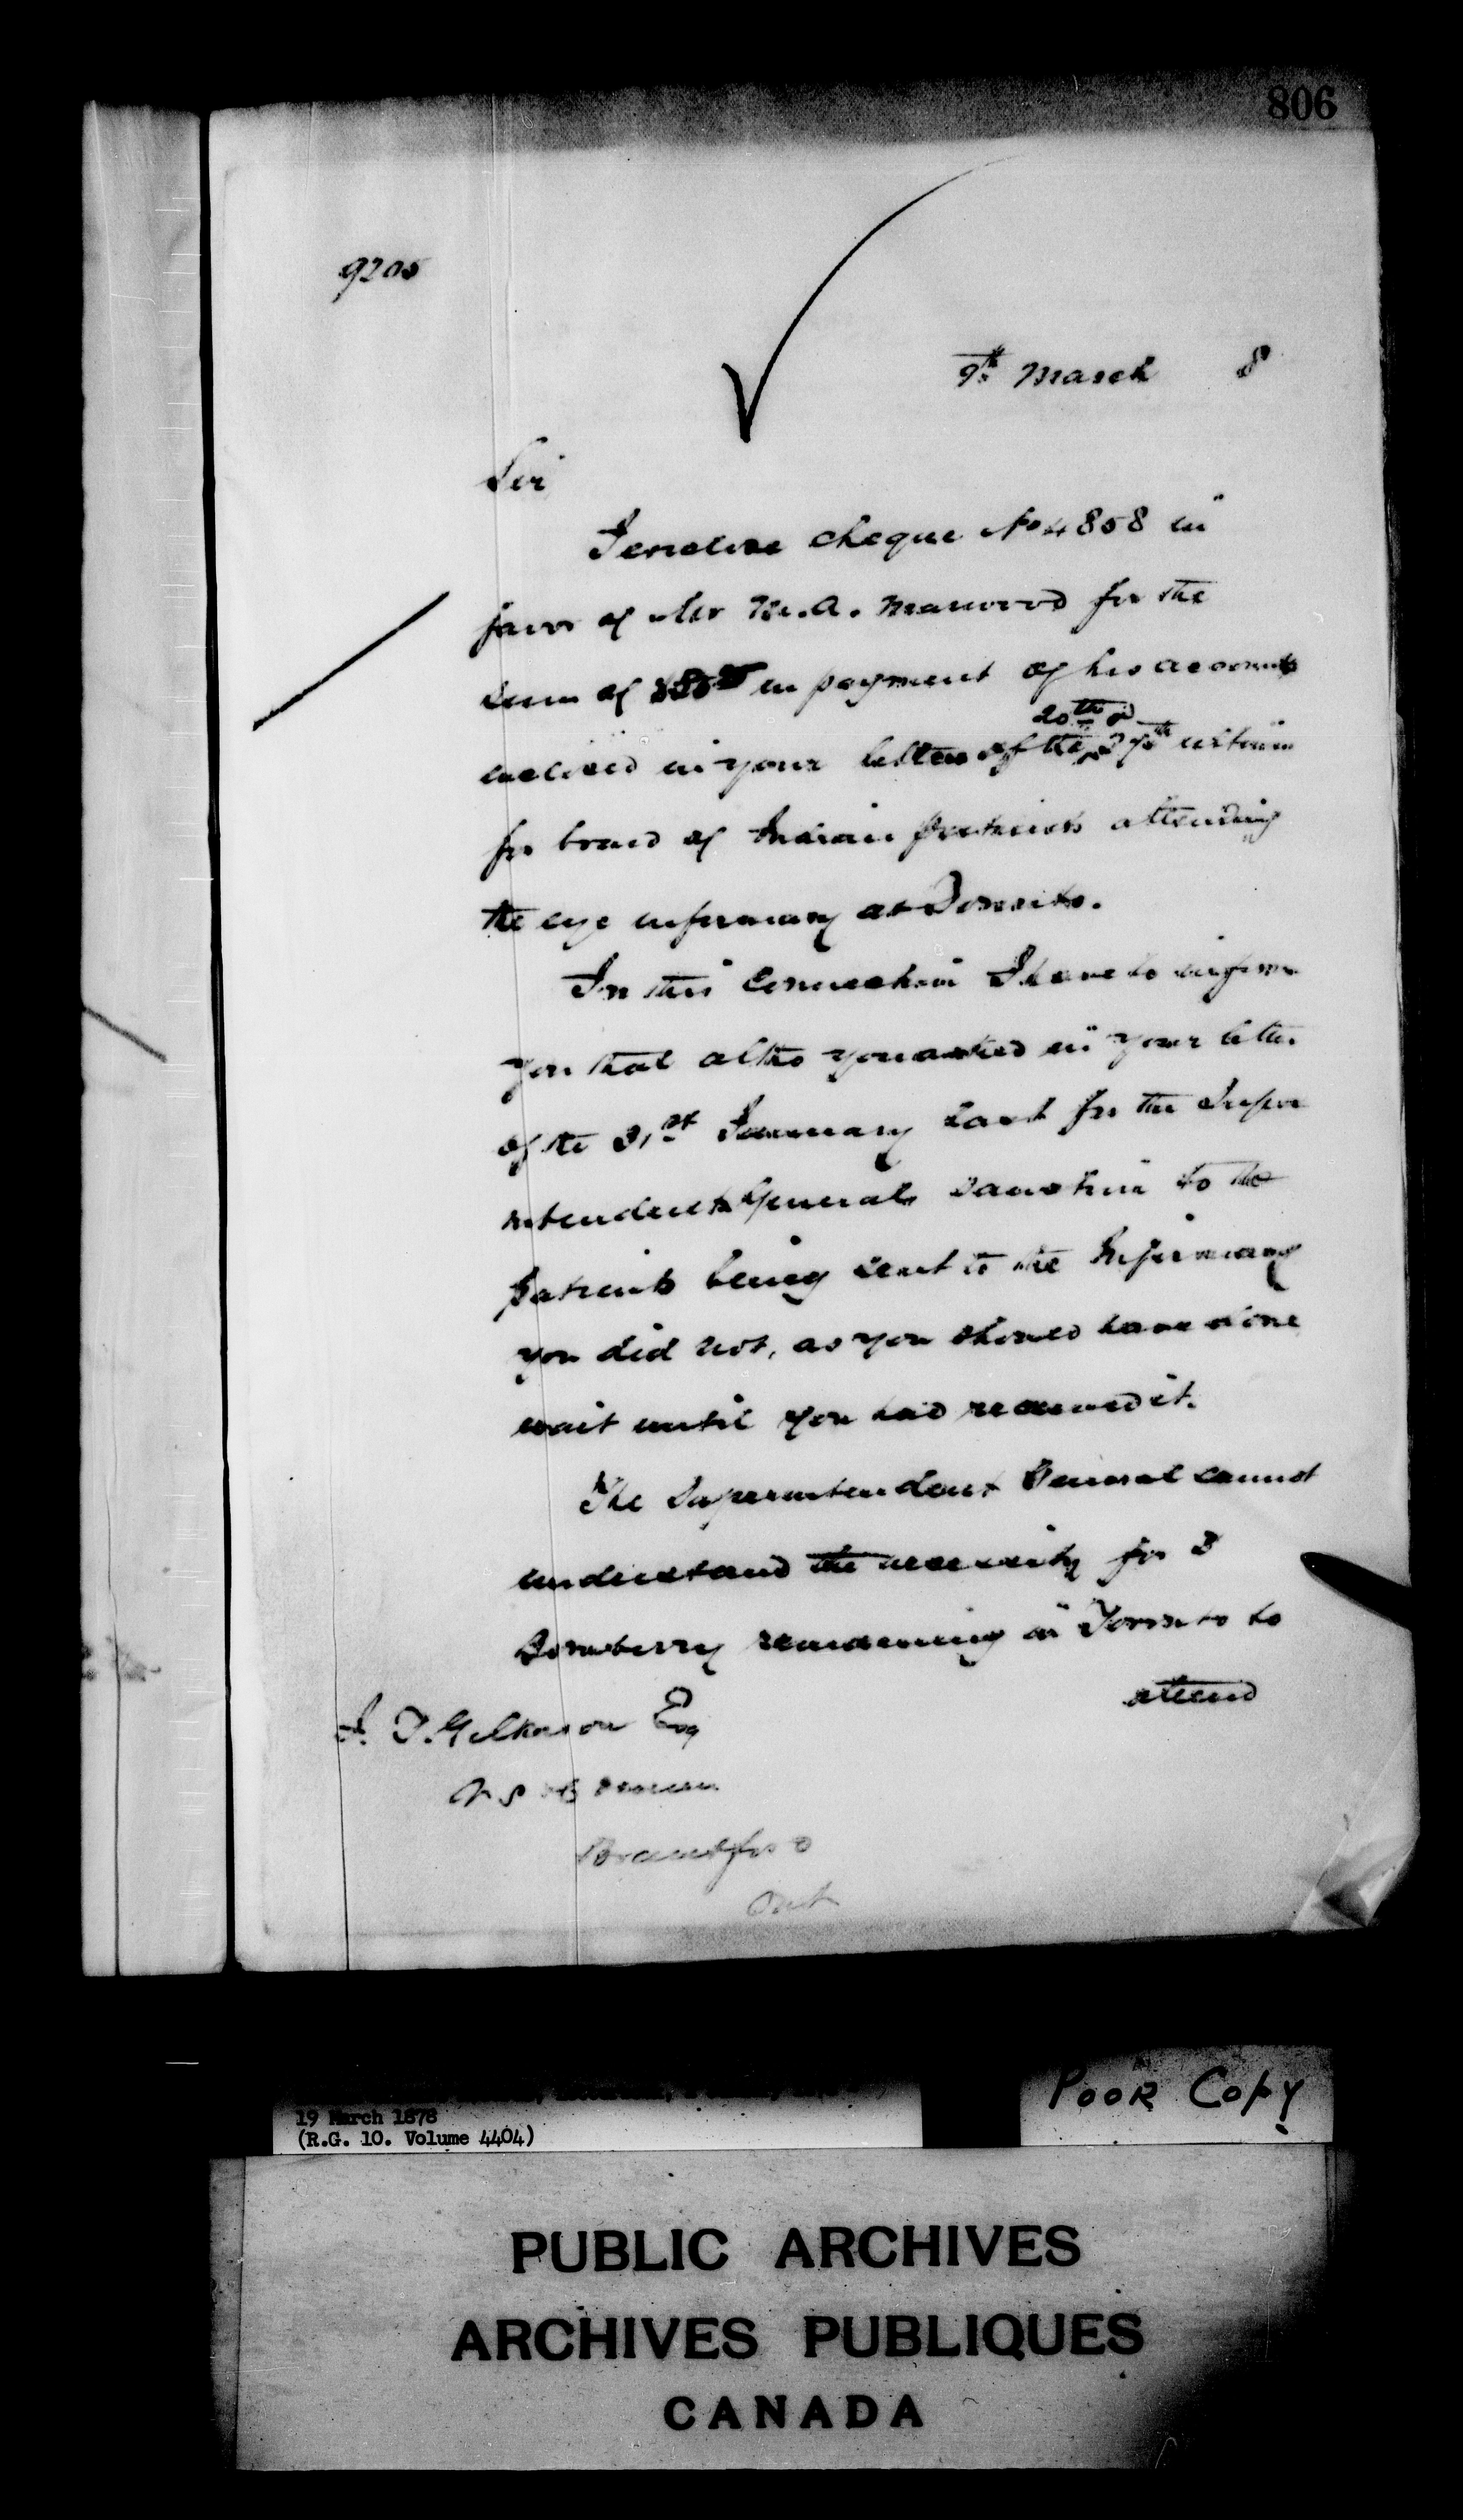 806
9205
9th March 8
Sir
I enclose cheque No 4858 in
favor of Mr M.A. for the
sum of in payment of his accounts
enclosed in your letters of the 20th & 27th ultimo
for board of Indian patients attending
the eye infirmary at Toronto.
In this connection I have to inform
you that altho you asked in your letter
of the 31st January last for the Super
intendent General's sanction to the
patients being sent to the Infirmary
you did not, as you should have done
wait until you had received it.
The Superintendent General cannot
understand the necessity for
remaining in Toronto to
attend
J. T. Gilkison Esq
Brantford
Ont
19 March 1878
(R.G. 10. Volume 4404)
POOR COPY
PUBLIC ARCHIVES
ARCHIVES PUBLIQUES
CANADA